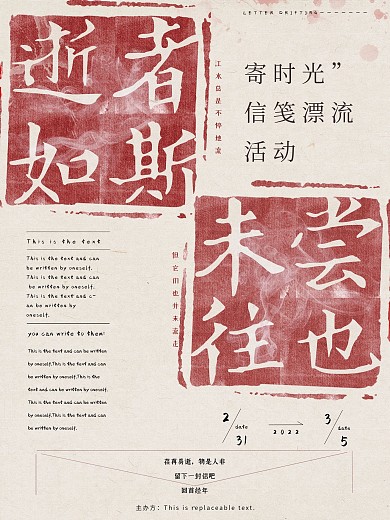 LETTER DRIFTING
逝者
如斯
江水总是不停地流
寄时光”
信笺漂流
活动
未尝
往也
但它们也并未流走
This is the text
This is the text and can
be written by oneself.
This is the text and can
be written by oneself.
This is the text and c-
an be written by
oneself.
you can write to them:
This is the text and can be written
by oneself.This is the text and can be
written by oneself.This is the
text and can be written by oneself.
This is the text and can be written
by oneself.This is the text and can be
written by oneself.
2/31
date
2022
3/5
date
花再易逝，物是人非
留下一封信吧
回首经年
主办方：This is replaceable text.